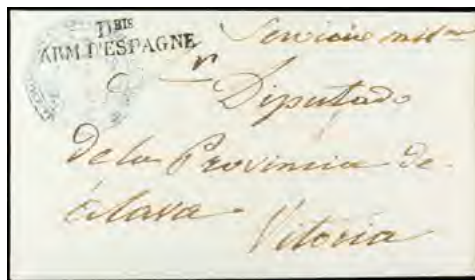 11BIS
ARM D'ESPAGNE
Servicio milr
Sr
Diputado
de la Provincia de
Alava
Vitoria